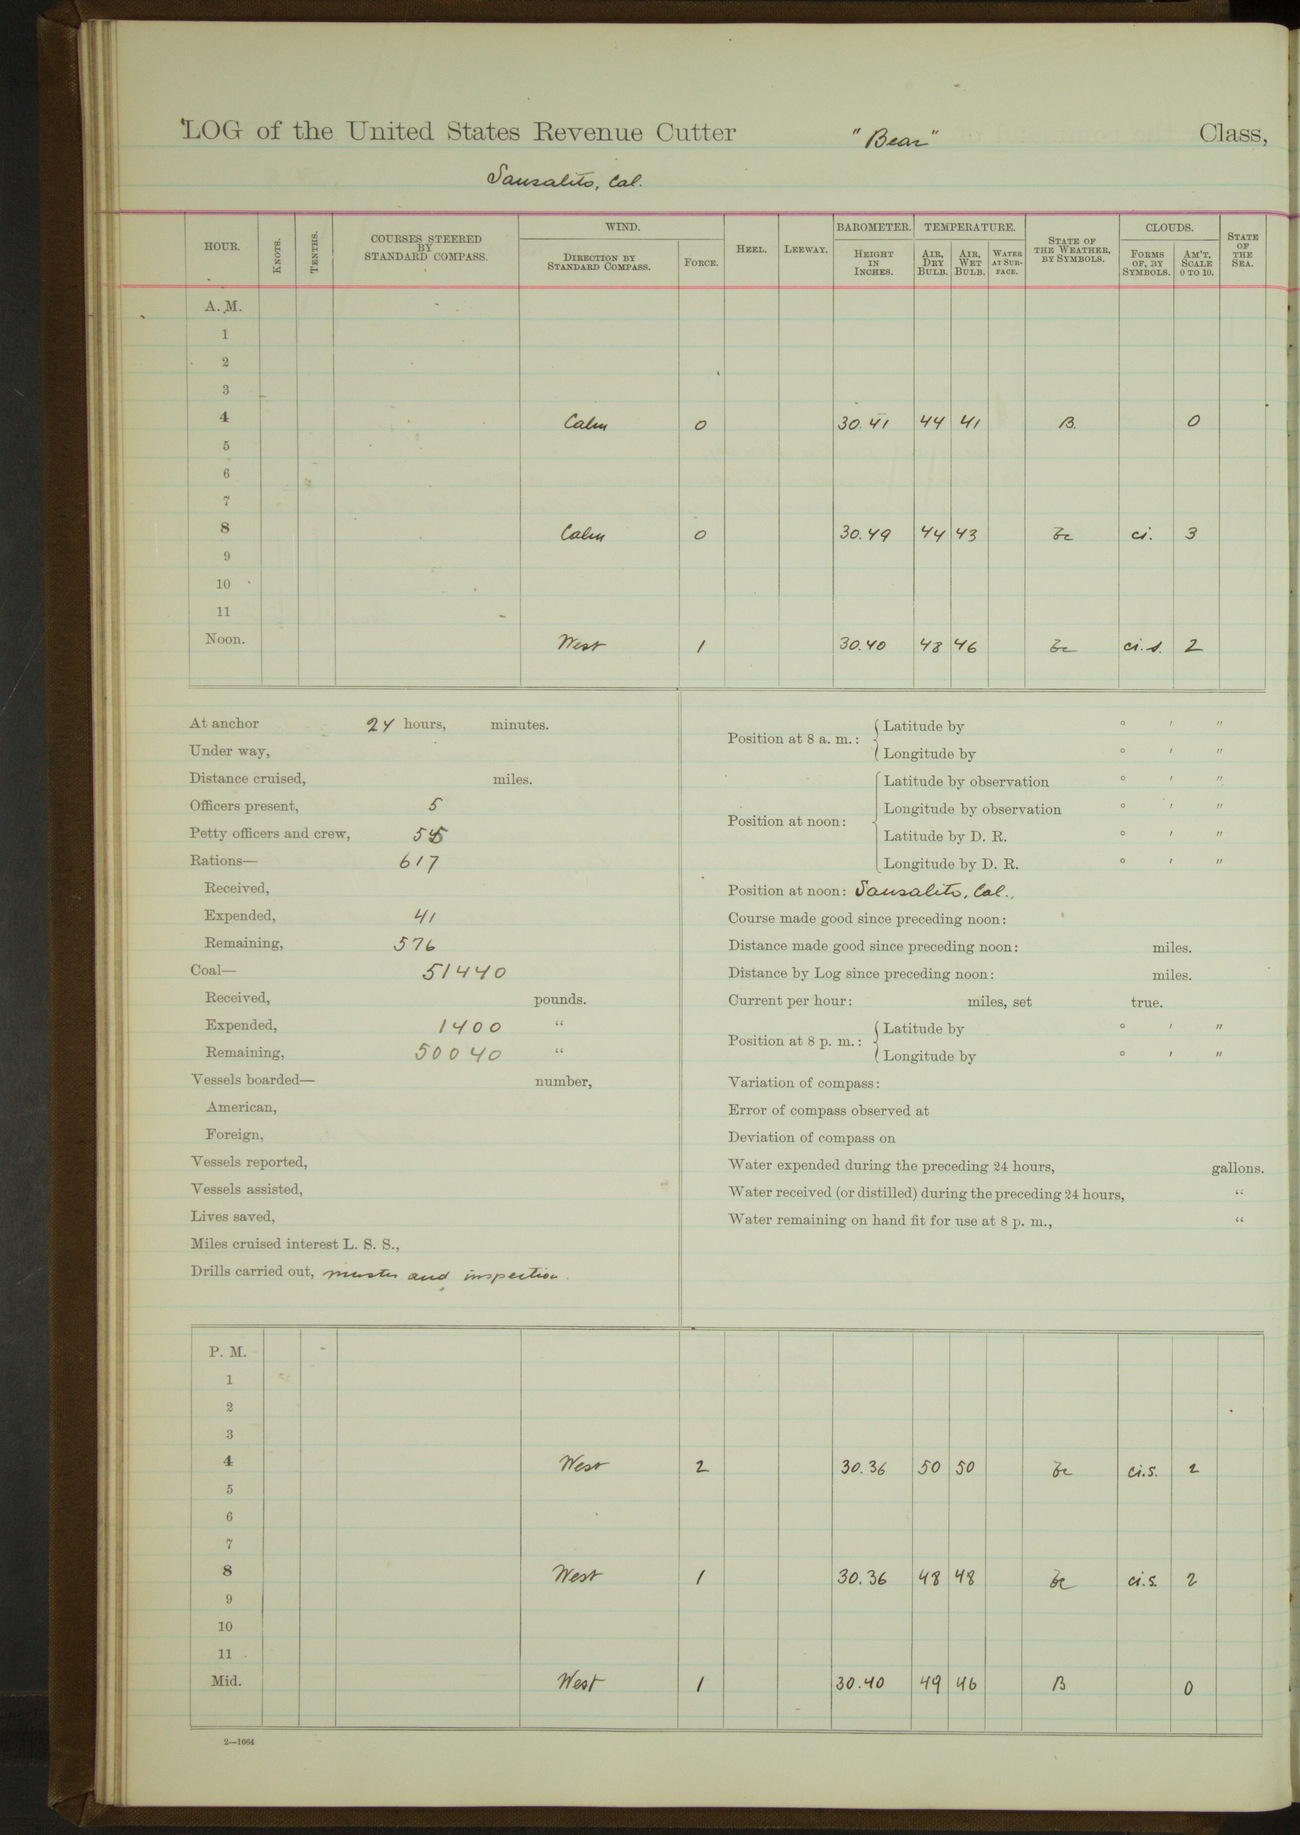 LOG of the United States Revenue Cutter "Bear" Class,
Sausalito, Cal.
HOUR. KNOTS. TENTHS. COURSES STEERED BY STANDARD COMPASS. WIND. DIRECTION BY STANDARD COMPASS. FORCE. HEEL. LEEWAY. BAROMETER. HEIGHT IN INCHES. TEMPERATURE. AIR, DRY BULB. AIR, WET BULB. WATER AT SURFACE. STATE OF THE WEATHER, BY SYMBOLS. CLOUDS. FORMS OF, BY SYMBOLS. AM'T, SCALE 0 TO 10. STATE OF THE SEA.
A. M.
1
2
3
4 Calm 0 30.41 44 41 B. 0
5
6
7
8 Calm 0 30.49 44 43 bc ci. 3
9
10
11
Noon. West 1 30.40 48 46 bc ci.s. 2
At anchor 24 hours, minutes.
Under way,
Distance cruised, miles.
Officers present, 5
Petty officers and crew, 55
Rations— 617
Received,
Expended, 41
Remaining, 576
Coal— 51440
Received, pounds.
Expended, 1400 "
Remaining, 50040 "
Vessels boarded— number,
American,
Foreign,
Vessels reported,
Vessels assisted,
Lives saved,
Miles cruised interest L. S. S.,
Drills carried out, muster and inspection.
Position at 8 a. m.: Latitude by ° ' "
Longitude by ° ' "
Position at noon: Latitude by observation ° ' "
Longitude by observation ° ' "
Latitude by D. R. ° ' "
Longitude by D. R. ° ' "
Position at noon: Sausalito, Cal.,
Course made good since preceding noon:
Distance made good since preceding noon: miles.
Distance by Log since preceding noon: miles.
Current per hour: miles, set true.
Position at 8 p. m.: Latitude by ° ' "
Longitude by ° ' "
Variation of compass:
Error of compass observed at
Deviation of compass on
Water expended during the preceding 24 hours, gallons.
Water received (or distilled) during the preceding 24 hours, "
Water remaining on hand fit for use at 8 p. m., "
P. M.
1
2
3
4 West 2 30.36 50 50 bc ci.s. 2
5
6
7
8 West 1 30.36 48 48 bc ci.s. 2
9
10
11
Mid. West 1 30.40 49 46 B 0
2—1664